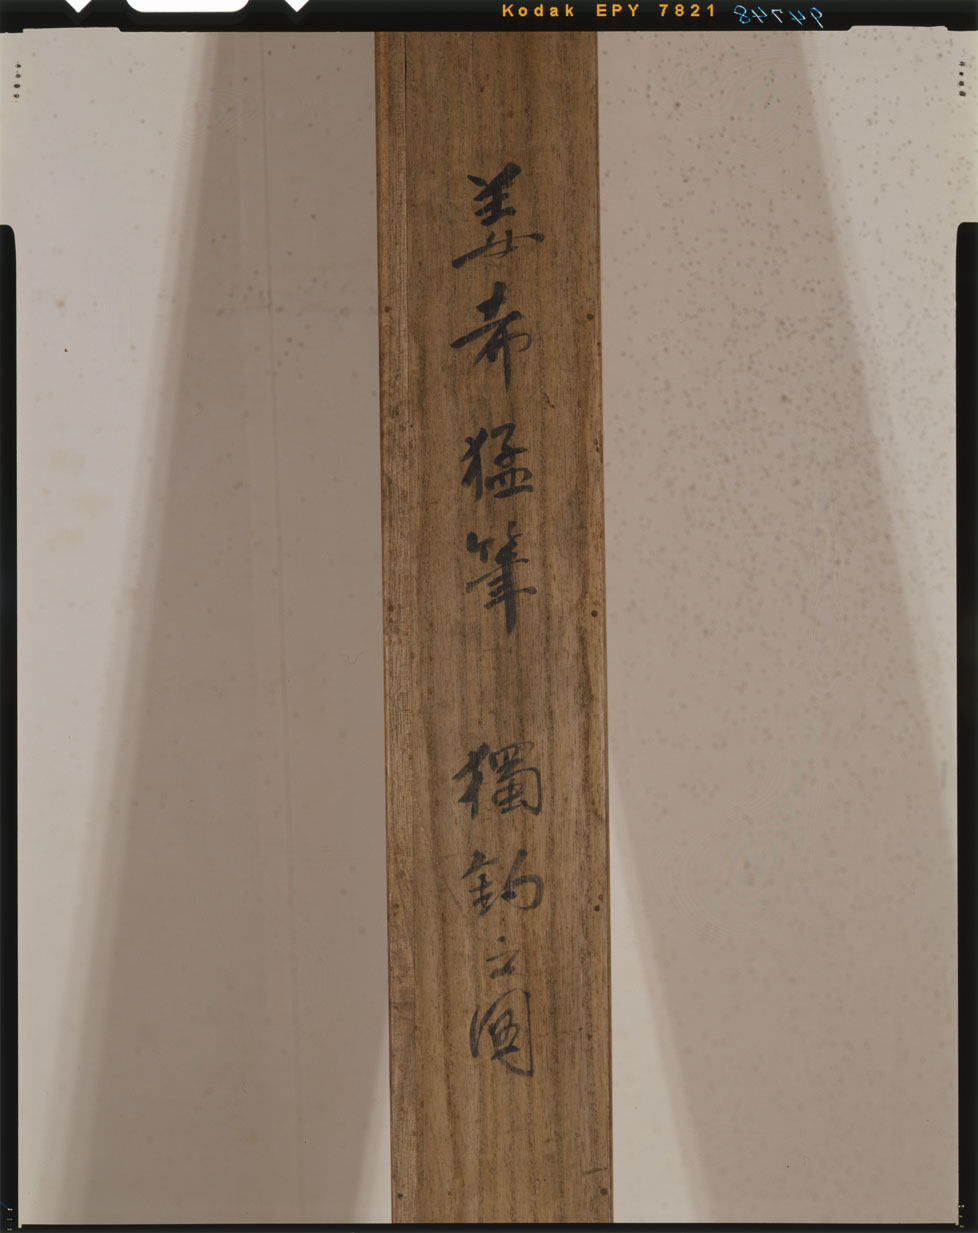 Kodak EPY 7821
94748
姜希猛筆 獨釣之圖